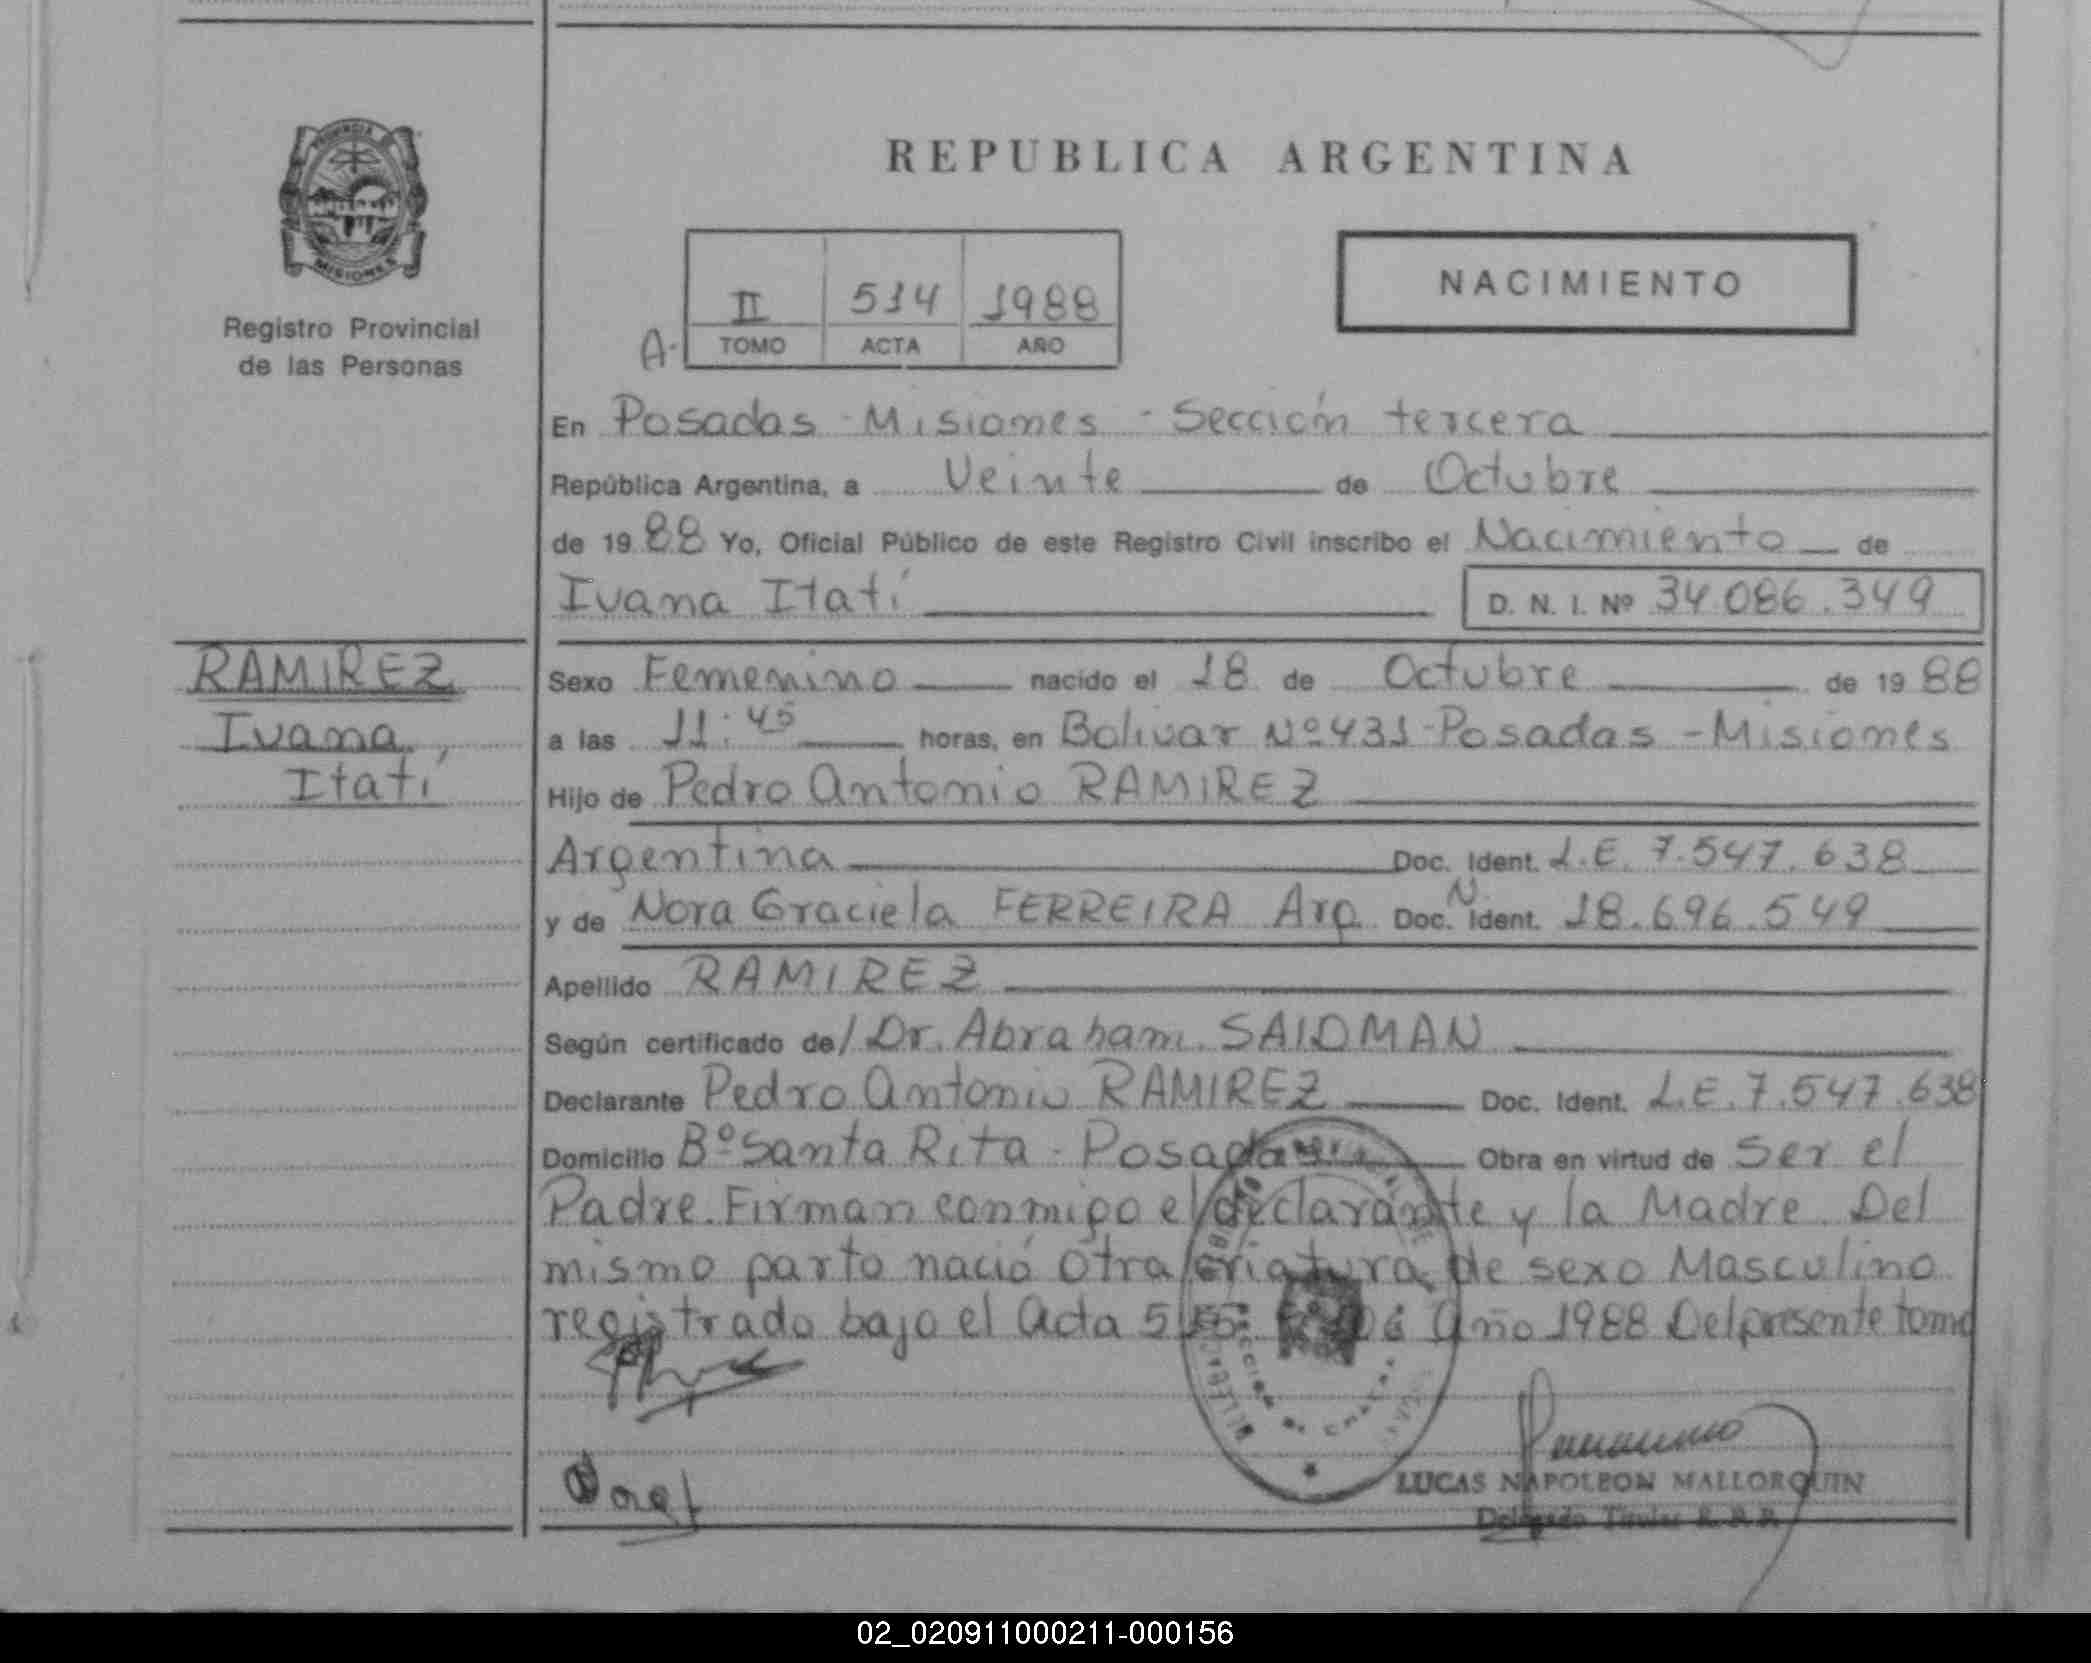 REPUBLICA ARGENTINA
PROVINCIA DE
MISIONES
Registro Provincial
de las Personas
NACIMIENTO
II 514 1988
A- TOMO ACTA AÑO
En Posadas - Misiones - Sección tercera
República Argentina, a Veinte de Octubre
de 1988 Yo, Oficial Público de este Registro Civil inscribo el Nacimiento de
Ivana Itatí D. N. I. Nº 34.086.349
RAMIREZ
Ivana
Itatí
Sexo Femenino nacido el 18 de Octubre de 1988
a las 11:45 horas, en Bolivar Nº 431 - Posadas - Misiones
Hijo de Pedro Antonio RAMIREZ
Argentina Doc. Ident. L.E. 7.547.638
y de Nora Graciela FERREIRA Arg. Doc. N. Ident. 18.696.549
Apellido RAMIREZ
Según certificado de/ Dr. Abraham SAIDMAN
Declarante Pedro Antonio RAMIREZ Doc. Ident. L.E. 7.547.638
Domicilio Bº Santa Rita - Posadas Obra en virtud de Ser el
Padre. Firman conmigo el declarante y la Madre. Del
mismo parto nació otra criatura de sexo Masculino
registrado bajo el Acta Año 1988 Del presente tomo
LUCAS NAPOLEON MALLORQUIN
Delegado Titular R. P. P.
02_020911000211-000156